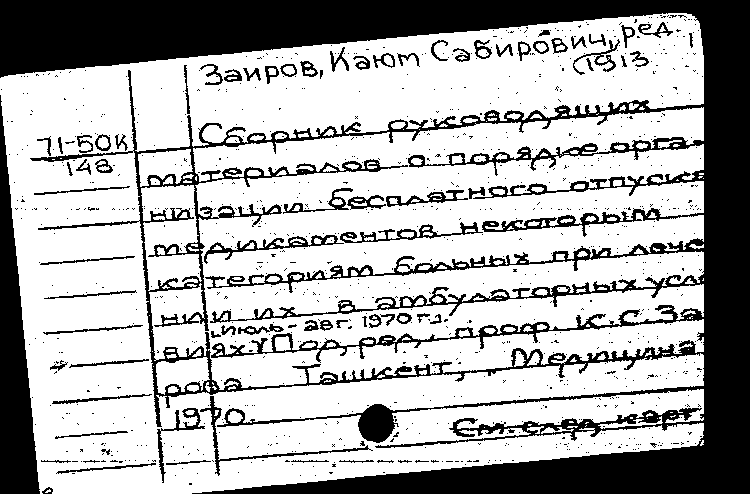 Заиров, Каюм Сабирович, ред.
(1913
71-50К
148
Сборник руководящих
материалов о порядке орга-
низации бесплатного отпуска
медикаментов некоторым
категориям больных при лече
нии их в амбулаторных усло
Июль - авг. 1970 г.
виях. Под. ред. проф. К.С. За
рова Ташкент, „Медицина"
1970.
См. след. карт